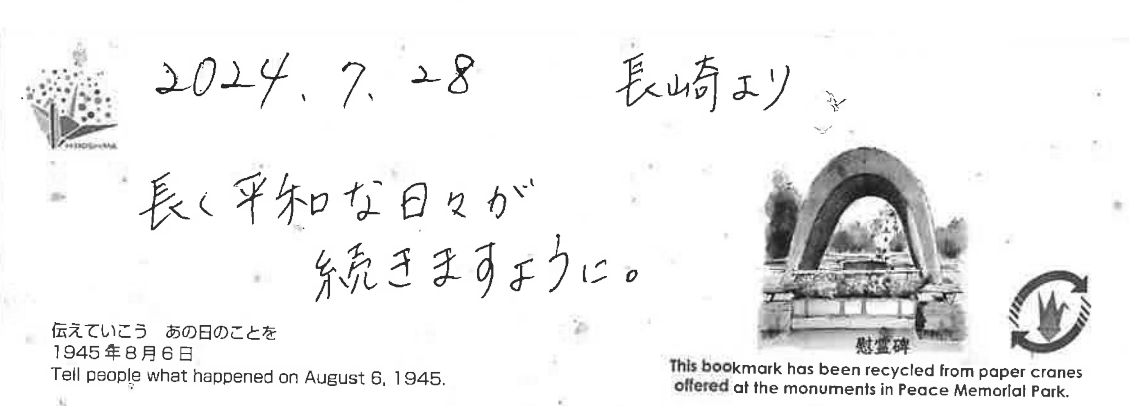 2024.7.28 長崎より
長く平和な日々が
続きますように。
伝えていこう あの日のことを
1945年8月6日
Tell people what happened on August 6, 1945.
慰霊碑
This bookmark has been recycled from paper cranes
offered at the monuments in Peace Memorial Park.